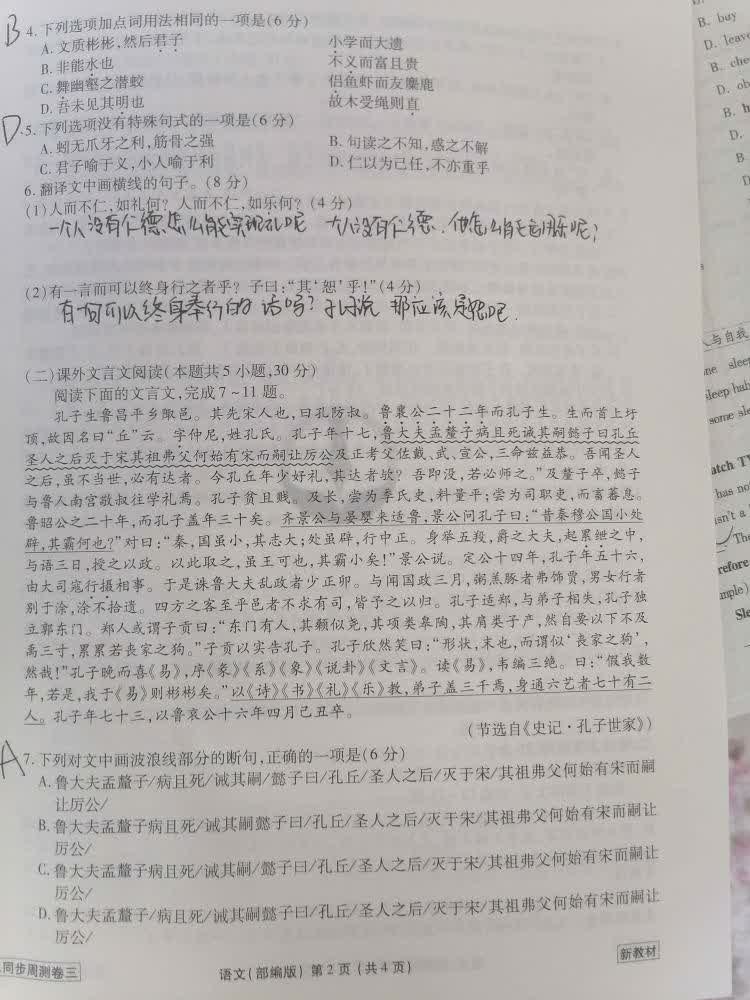 B 4. 下列选项加点词用法相同的一项是(6 分)
A. 文质彬彬,然后君子 小学而大遗
B. 非能水也 不义而富且贵
C. 舞幽壑之潜蛟 侣鱼虾而友麋鹿
D. 吾未见其明也 故木受绳则直
D 5. 下列选项没有特殊句式的一项是(6 分)
A. 蚓无爪牙之利,筋骨之强 B. 句读之不知,惑之不解
C. 君子喻于义,小人喻于利 D. 仁以为己任,不亦重乎
6. 翻译文中画横线的句子。(8 分)
(1)人而不仁,如礼何? 人而不仁,如乐何? (4 分)
一个人没有仁德,怎么能实现礼呢 一个人没有仁德,他怎么能运用乐呢?
(2)有一言而可以终身行之者乎? 子曰:“其‘恕’乎!”(4 分)
有一句可以终身奉行的话吗? 孔子说 那应该是恕吧.
(二)课外文言文阅读(本题共 5 小题,30 分)
阅读下面的文言文,完成 7~11 题。
孔子生鲁昌平乡陬邑。其先宋人也,曰孔防叔。鲁襄公二十二年而孔子生。生而首上圩
顶,故因名曰“丘”云。字仲尼,姓孔氏。孔子年十七,鲁大夫孟釐子病且死诫其嗣懿子曰孔丘
圣人之后灭于宋其祖弗父何始有宋而嗣让厉公及正考父佐戴、武、宣公,三命兹益恭。吾闻圣人
之后,虽不当世,必有达者。今孔丘年少好礼,其达者欤? 吾即没,若必师之。”及釐子卒,懿子
与鲁人南宫敬叔往学礼焉。孔子贫且贱。及长,尝为季氏史,料量平;尝为司职吏,而畜蕃息。
鲁昭公之二十年,而孔子盖年三十矣。齐景公与晏婴来适鲁,景公问孔子曰:“昔秦穆公国小处
辟,其霸何也?”对曰:“秦,国虽小,其志大;处虽辟,行中正。身举五羖,爵之大夫,起累绁之中,
与语三日,授之以政。以此取之,虽王可也,其霸小矣!”景公说。定公十四年,孔子年五十六,
由大司寇行摄相事。于是诛鲁大夫乱政者少正卯。与闻国政三月,粥羔豚者弗饰贾,男女行者
别于涂,涂不拾遗。四方之客至乎邑者不求有司,皆予之以归。孔子适郑,与弟子相失,孔子独
立郭东门。郑人或谓子贡曰:“东门有人,其颡似尧,其项类皋陶,其肩类子产,然自要以下不及
禹三寸,累累若丧家之狗。”子贡以实告孔子。孔子欣然笑曰:“形状,末也,而谓似‘丧家之狗’,
然哉!”孔子晚而喜《易》,序《彖》《系》《象》《说卦》《文言》。读《易》,韦编三绝。曰:“假我数
年,若是,我于《易》则彬彬矣。”以《诗》《书》《礼》《乐》教,弟子盖三千焉,身通六艺者七十有二
人。孔子年七十三,以鲁哀公十六年四月己丑卒。
(节选自《史记·孔子世家》)
A 7. 下列对文中画波浪线部分的断句,正确的一项是(6 分)
A. 鲁大夫孟釐子/病且死/诫其嗣/懿子曰/孔丘/圣人之后/灭于宋/其祖弗父何始有宋而嗣
让厉公/
B. 鲁大夫孟釐子/病且死/诫其嗣懿子曰/孔丘/圣人之后/灭于宋/其祖弗父何始有宋而嗣让
厉公/
C. 鲁大夫孟釐子病且死/诫其嗣/懿子曰/孔丘/圣人之后/灭于宋/其祖弗父何始有宋而嗣让
厉公/
D. 鲁大夫孟釐子/病且死/诫其嗣懿子曰/孔丘/圣人之后/灭于宋/其祖弗父何始有宋而嗣让
厉公/
同步周测卷三 语文(部编版) 第 2 页(共 4 页) 新教材
B. buy
D. leave
B. che
D. ob
B. h
D.
B
D
人与自我
one sleep
sleep hab
some sle
atch TV
has no
isn't a
The
refore
mple)
Sle